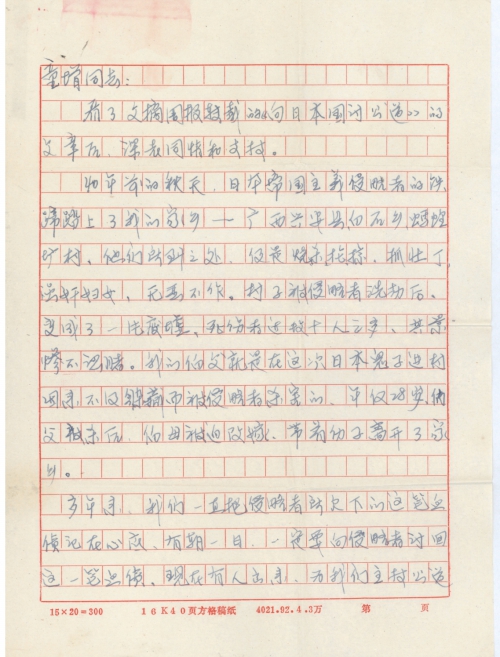 童增同志：
看了文摘周报转载《向日本国讨公道》的
文章后，深表同情和支持。
48年前的秋天，日本帝国主义侵略者的铁
蹄踏上了我的家乡一广西兴安县白石乡
村，他们所到之处，仅是烧杀抢掠，抓壮丁，
强奸妇女，无恶不作。村子被侵略者洗劫后，
变成了一片废墟，死伤者达数十人之多，其景
惨不忍睹。我的伯父就是在这次日本鬼子进村
因来不及躲藏而被侵略者杀害的，年仅28岁，伯
父被杀后，伯母被迫改嫁，带着幼子离开了家
乡。
多年来，我们一直把侵略者所欠下的这笔血
债记在心底，有朝一日，一定要向侵略者讨回
这一笔血债。现在有人出来，为我们主持公道
15×20=300 16K40页方格稿纸 4021.92.4.3万 第 页